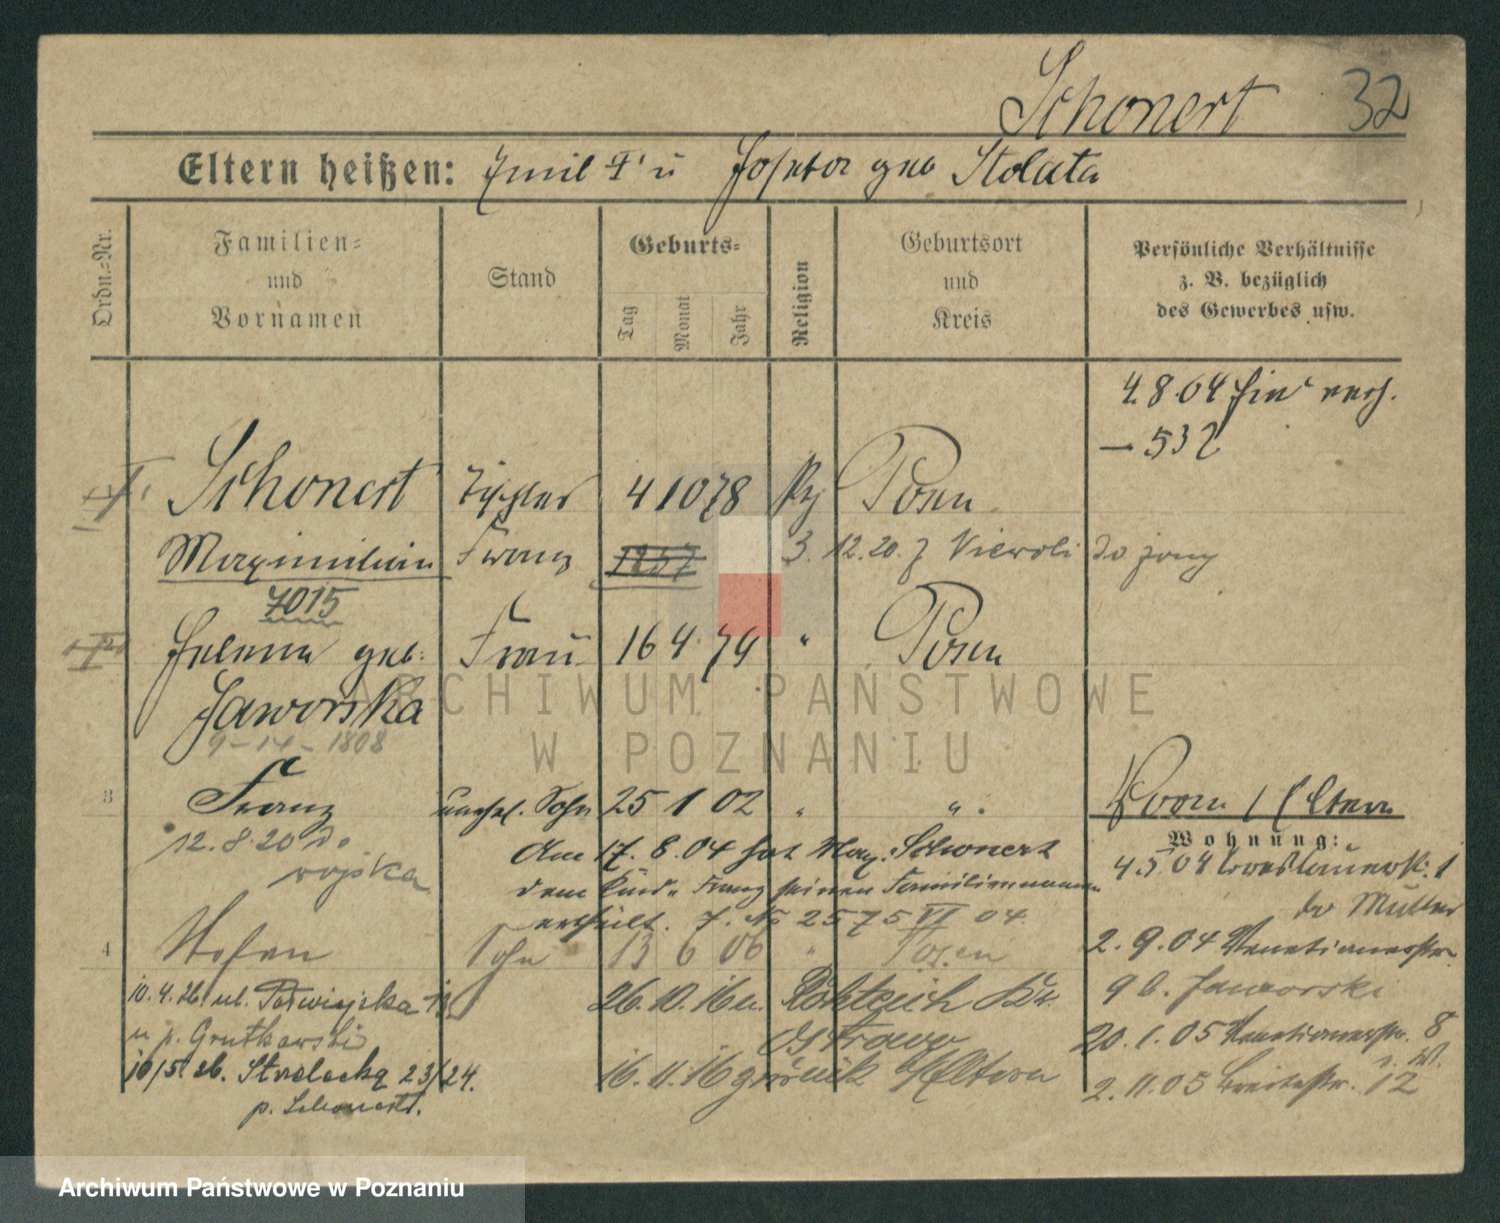 Schonert 32
Eltern heißen: Emil u Josefa geb Stolata
Ordn.-Nr.
Familien- und Vornamen
Stand
Geburts-
Tag Monat Jahr
Religion
Geburtsort und Kreis
Persönliche Verhältnisse
z. B. bezüglich
des Gewerbes usw.
4.8.04
— 532
Schonert Tischler 4 10 78 Posen
Maximilian Franz 1857 3.12.20.
7015
Helena geb. Frau 16 4 79 " Posen
Jaworska
9-14-1808
3 Franz unehel. Sohn 25 1 02 " " .
12.8.20 do
wojska
Am 17.8.04 hat Max. Schonert
dem Kinde Franz seinen Familiennamen
ertheilt. J. No 2575 VI 04.
4 Stefan Sohn 13 6 06 " Posen
10.4.26. ul.
u p. Grutkowski
10/5 26. Strzelecka 23/24.
p. Schonert.
26.10.16
16.11.16 zurück Eltern
Eltern
Wohnung:
4.5 04 Breslauerstr. 1
bei Müller
2.9.04 Venetianerstr.
9 b. Jaworski
20.1.05 Venetianerstr. 8
2.11.05 Breitestr. 12
ARCHIWUM PAŃSTWOWE
W POZNANIU
Archiwum Państwowe w Poznaniu